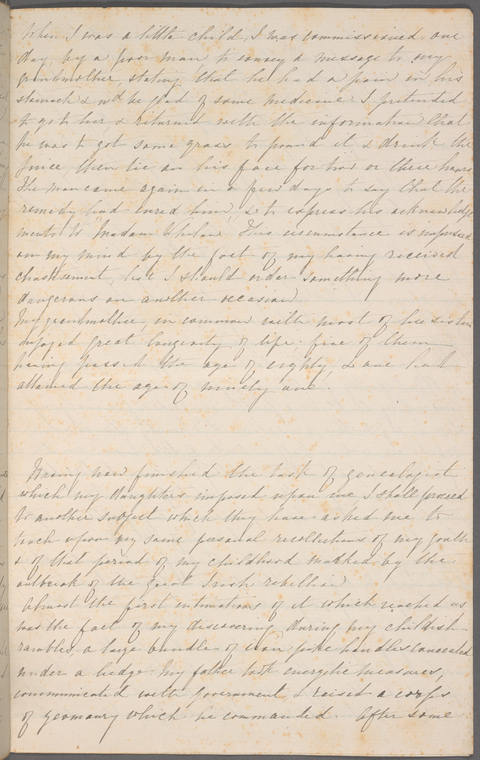 When I was a little child, I was commissioned one
day, by a poor man to convey a message to my
grandmother, stating that he had a pain in his
stomach & wd be glad of some medicine. I pretended
to go to her, & returned with the information that
he was to get some grass, to pound it & drink the
juice, then lie on his face for two or three hours
The man came again in a few days to say that the
remedy had cured him, & to express his acknowledg
ments to Madam. This circumstance is impressed
on my mind by the fact of my having received
chastisement, lest I should order something more
dangerous on another occasion
My grandmother, in common with most of her sisters
enjoyed great longevity of life: five of them
having passed the age of eighty, & one had
attained the age of ninety one.
Having now finished the task of genealogist
which my daughters imposed upon me I shall proceed
to another subject which they have asked me to
touch upon viz some personal recollections of my youth
& of that period of my childhood marked by the
outbreak of the great Irish rebellion
Almost the first intimations of it which reached us
was the fact of my discovering during my childish
rambles, a large bundle of pike handles concealed
under a hedge. My father took energetic measures,
communicated with Government & raised a corps
of yeomanry which he commanded. After some